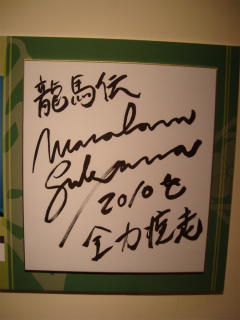 龍馬伝
Masaharu
Fukuyama
2010も
全力疾走